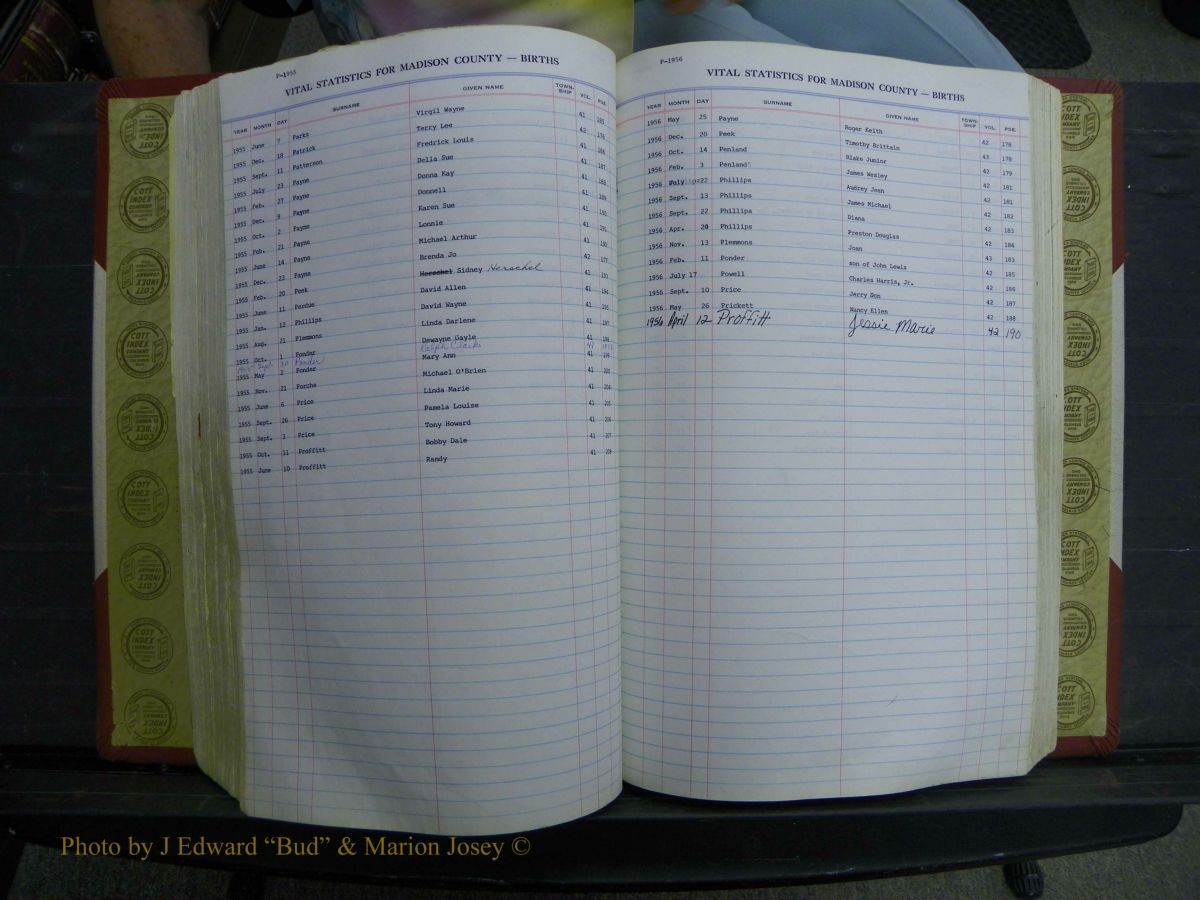 P-1955
VITAL STATISTICS FOR MADISON COUNTY — BIRTHS
YEAR MONTH DAY SURNAME GIVEN NAME TOWN-SHIP VOL. PGE.
1955 June 7 Parks Virgil Wayne 41 185
1955 Dec. 18 Patrick Terry Lee 42 176
1955 Sept. 11 Patterson Fredrick Louis 41 186
1955 July 23 Payne Della Sue 41 187
1955 Feb. 27 Payne Donna Kay 41 188
1955 Dec. 9 Payne Donnell 41 189
1955 Oct. 2 Payne Karen Sue 41 190
1955 Feb. 21 Payne Lonnie 41 191
1955 June 14 Payne Michael Arthur 41 192
1955 Dec. 23 Payne Brenda Jo 42 177
1955 Feb. 20 Peek Herschel Sidney Herschel 41 193
1955 June 11 Perdue David Allen 41 194
1955 Jan. 12 Phillips David Wayne 41 195
1955 Aug. 21 Plemmons Linda Darlene 41 197
1955 Oct. 1 Ponder Dewayne Gayle 41 198
1955 Sept 30 Ponder Ralph Clark 41
1955 May 2 Ponder Mary Ann 41 199
1955 Nov. 21 Porche Michael O'Brien 41 203
1955 June 6 Price Linda Marie 41 204
1955 Sept. 26 Price Pamela Louise 41 205
1955 Sept. 3 Price Tony Howard 41 206
1955 Oct. 11 Proffitt Bobby Dale 41 207
1955 June 10 Proffitt Randy 41 208
P-1956
VITAL STATISTICS FOR MADISON COUNTY — BIRTHS
YEAR MONTH DAY SURNAME GIVEN NAME TOWN-SHIP VOL. PGE.
1956 May 25 Payne Roger Keith 42 178
1956 Dec. 20 Peek Timothy Brittain 43 178
1956 Oct. 14 Penland Blake Junior 42 179
1956 Feb. 3 Penland James Wesley 42 181
1956 July 22 Phillips Audrey Jean 42 181
1956 Sept. 13 Phillips James Michael 42 182
1956 Sept. 22 Phillips Diana 42 183
1956 Apr. 20 Phillips Preston Douglas 42 184
1956 Nov. 13 Plemmons Joan 43 183
1956 Feb. 11 Ponder son of John Lewis 42 185
1956 July 17 Powell Charles Harris, Jr. 42 186
1956 Sept. 10 Price Jerry Don 42 187
1956 May 26 Prickett Nancy Ellen 42 188
1956 April 12 Proffitt Jessie Marie 42 190
COTT INDEX COMPANY
Photo by J Edward “Bud” & Marion Josey ©